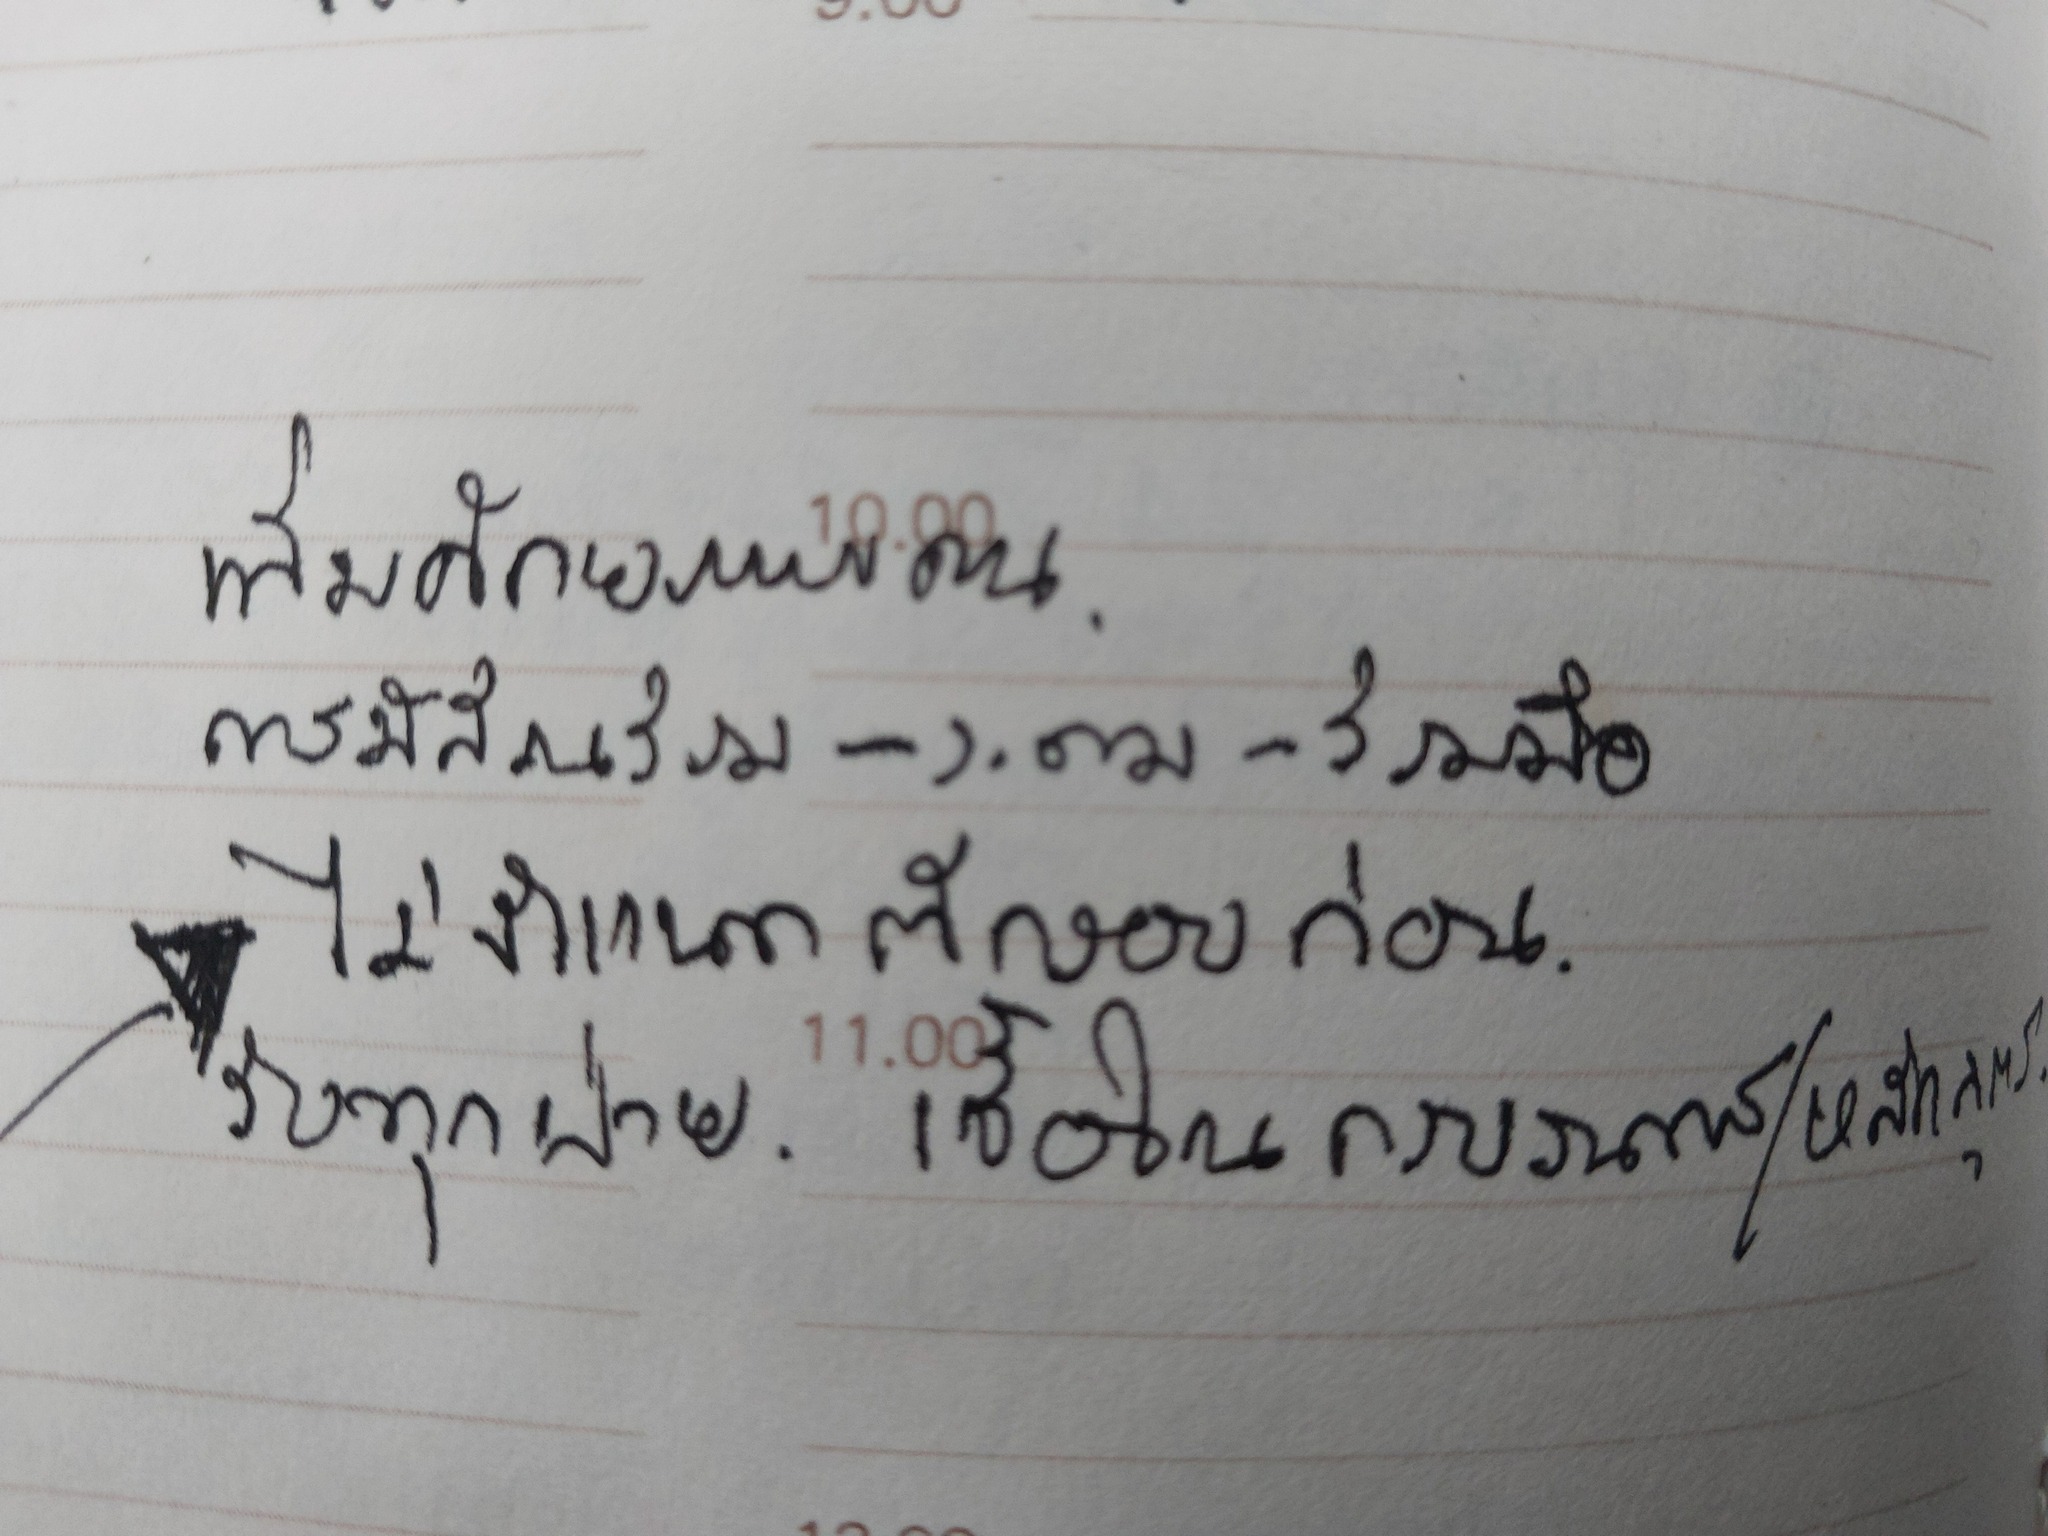 10.00
เพิ่มศักยภาพของตน.
การมีส่วนร่วม - ร.ตาม - ร่วมมือ
ไม่ กำหนด คำตอบ ก่อน.
11.00
รับทุกฝ่าย. เชื่อใน กระบวนการ/หลักสูตร.